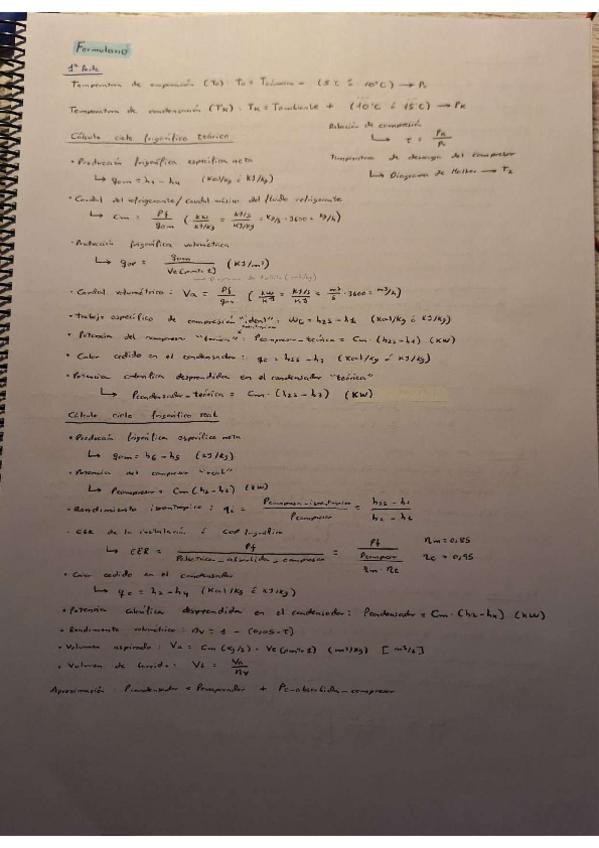 Formulario
1ª Parte
Temperatura de evaporación (To): To = Tcámara - (5°C ó 10°C) → Po
Temperatura de condensación (TK): TK = Tambiente + (10°C ó 15°C) → PK
Relación de compresión
↳ τ = PK / Po
Cálculo ciclo frigorífico teórico:
Temperatura de descarga del compresor
↳ Diagrama de Mollier → T2
• Producción frigorífica específica neta
↳ qom = h1 - h4 (Kcal/kg ó KJ/kg)
• Caudal del refrigerante / caudal másico del fluido refrigerante
↳ Cm = Pf / qom (KW / KJ/kg = KJ/s / KJ/kg = kg/s · 3600 = kg/h)
• Producción frigorífica volumétrica
↳ qov = qom / Ve(punto 1) (KJ/m³)
→ Diagrama de Mollier (m³/kg)
• Caudal volumétrico: Va = Pf / qov ( = m³/s · 3600 = m³/h)
• Trabajo específico de compresión "ideal": Wc = h2s - h1 (Kcal/kg ó KJ/kg)
• Potencia del compresor "teórica": Pcompresor-teórica = Cm · (h2s - h1) (KW)
• Calor cedido en el condensador: qc = h2s - h3 (Kcal/kg ó KJ/kg)
• Potencia calorífica desprendida en el condensador "teórica"
↳ Pcondensador-teórica = Cm · (h2s - h3) (KW)
Cálculo ciclo frigorífico real
• Producción frigorífica específica neta
↳ qom = h6 - h5 (KJ/kg)
• Potencia del compresor "real"
↳ Pcompresor = Cm (h2 - h1) (KW)
• Rendimiento isentrópico: ηi = / Pcompresor = h2s - h1 / h2 - h1
• EER de la instalación ó COP frigorífico
↳ EER = Pf / Peléctrica_absorbida_compresor = Pf / Pcompresor / ηm · ηe
ηm = 0,85
ηe = 0,95
• Calor cedido en el condensador
↳ qc = h2 - h4 (Kcal/kg ó KJ/kg)
• Potencia calorífica desprendida en el condensador: Pcondensador = Cm · (h2 - h4) (KW)
• Rendimiento volumétrico: ηv = 1 - (0,05 · τ)
• Volumen aspirado: Va = Cm (kg/s) · Ve(punto 1) (m³/kg) [m³/s]
• Volumen de barrido: Vb = Va / ηv
Aproximación: Pcondensador = Pevaporador + Pe-absorbida-compresor